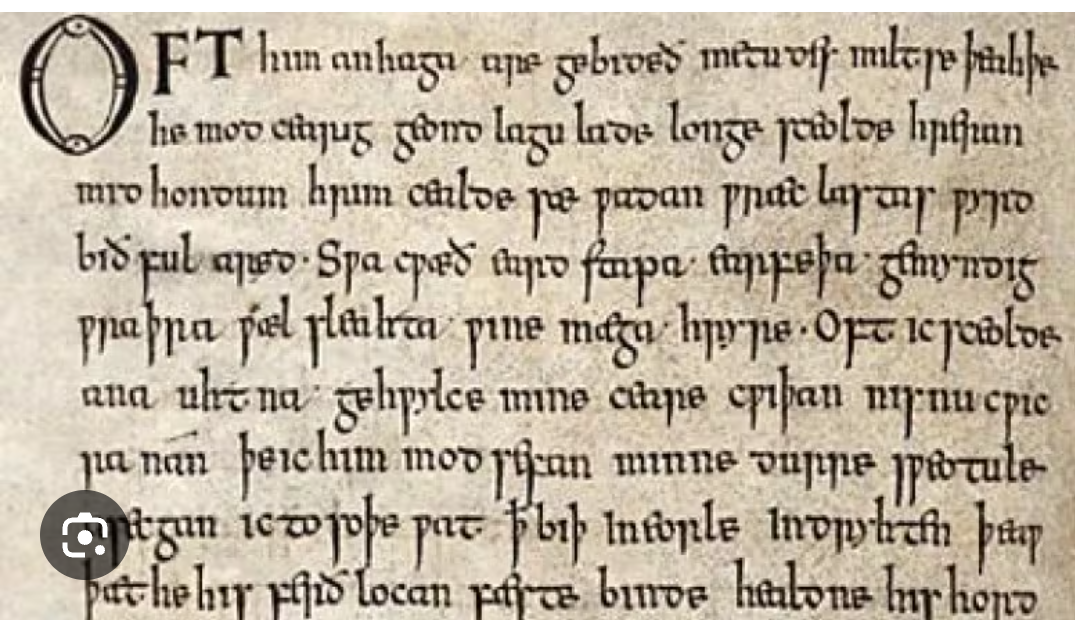 OFT him anhaga are gebideð metudes miltse þeahþe
he mod cearig geond lagu lade longe sceolde hreran
mid hondum hrim cealde sæ wadan wræc lastas wyrd
bið ful aræd· Swa cwæð eard stapa earfeþa gemyndig
wraþra wæl sleahta wine mæga hryre· Oft ic sceolde
ana uhtna gehwylce mine ceare cwiþan nis nu cwic
ra nan þe ic him mod sefan minne durre sweotule
ic to soþe wat þ biþ in eorle indryhten þeaw
þæt he his ferð locan fæste binde healdne his hord